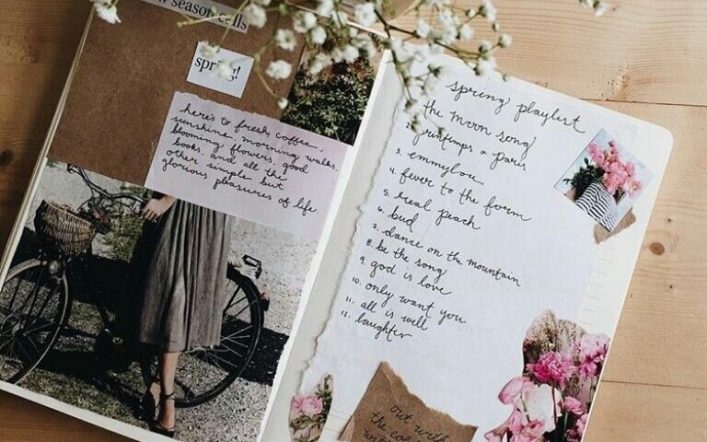 season calls
spring!
here's to fresh coffee,
sunshine, morning walks,
blooming flowers, good
books, and all the
other simple but
glorious pleasures of life
spring playlist
the moon song
2. printemps a paris
3. emmylou
4. fever to the form
5. real peach
6. bud
7. dance on the mountain
8. be the song
9. god is love
10. only want you
11. all is well
12. laughter
out with
the co